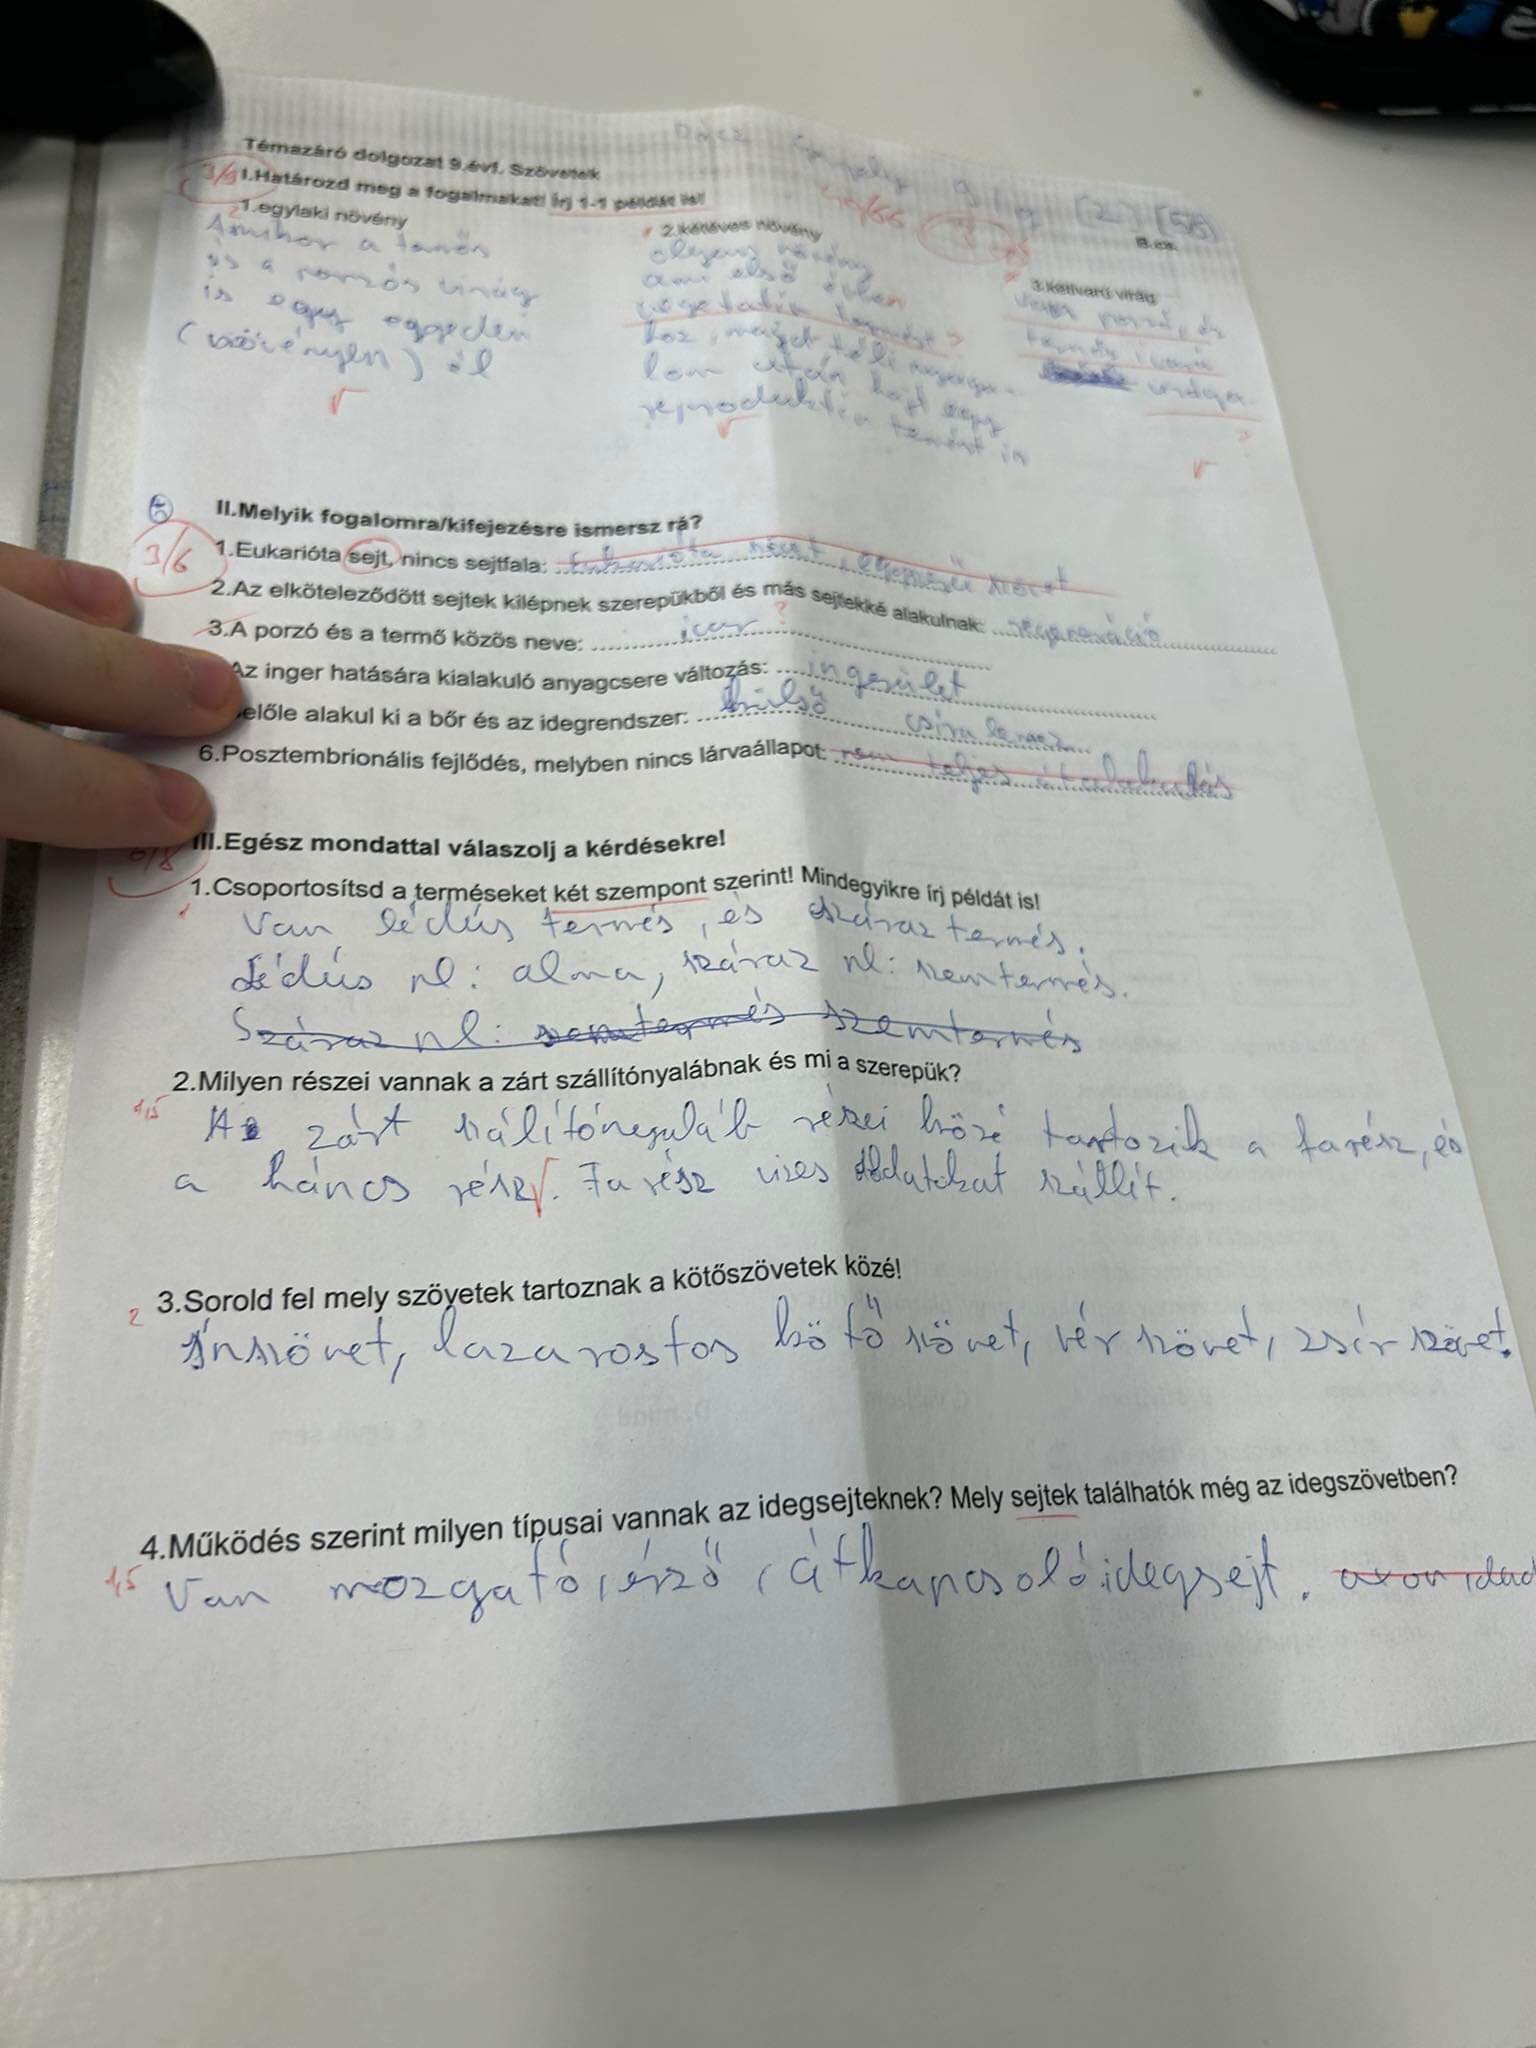 Témazáró dolgozat 9.évf. Szövetek
B.cs.
I.Határozd meg a fogalmakat! Írj 1-1 példát is!
1.egylaki növény
Amikor a termős
és a porzós virág
is egy egyeden
(növényen) él
2.kétéves növény
olyan növény
ami első évben
vegetatív termést
hoz, majd téli nyuga-
lom után hajt egy
reproduktív termést is
3.kétivarú virág
van porzó, és
termős ivarú
virága
3/6
II.Melyik fogalomra/kifejezésre ismersz rá?
1.Eukarióta sejt, nincs sejtfala: eukarióta növet, egynemű növet
2.Az elköteleződött sejtek kilépnek szerepükből és más sejtekké alakulnak: regeneráció
3.A porzó és a termő közös neve: ivar ?
Az inger hatására kialakuló anyagcsere változás: ingerület
előle alakul ki a bőr és az idegrendszer: külső csíralemez
6.Posztembrionális fejlődés, melyben nincs lárvaállapot: nem teljes átalakulás
6/8
III.Egész mondattal válaszolj a kérdésekre!
1.Csoportosítsd a terméseket két szempont szerint! Mindegyikre írj példát is!
1
Van lédús termés, és száraz termés.
Lédús pl: alma, száraz pl: szemtermés.
Száraz pl: szemtermés szemtermés
2.Milyen részei vannak a zárt szállítónyalábnak és mi a szerepük?
1,5
A zárt szálítónyaláb részei közé tartozik a farész, és
a háncs rész. Fa rész vizes oldatokat szállít.
3.Sorold fel mely szövetek tartoznak a kötőszövetek közé!
2
Ínszövet, lazarostos kötőszövet, vér szövet, zsír szövet.
4.Működés szerint milyen típusai vannak az idegsejteknek? Mely sejtek találhatók még az idegszövetben?
1,5
Van mozgató, érző, átkapcsoló idegsejt. axon